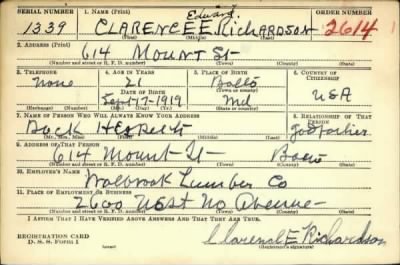 SERIAL NUMBER 1. NAME (Print) ORDER NUMBER
Edward
1339 CLARENCE E. RICHARDSON 2614
(First) (Middle) (Last)
2. ADDRESS (Print)
614 MOUNT St
(Number and street or R. F. D. number) (Town) (County) (State)
3. TELEPHONE 4. AGE IN YEARS 5. PLACE OF BIRTH 6. COUNTRY OF CITIZENSHIP
None 21 Balto
DATE OF BIRTH (Town or county)
Sept 17-1919 Md USA
(Exchange) (Number) (Mo.) (Day) (Yr.) (State or country)
7. NAME OF PERSON WHO WILL ALWAYS KNOW YOUR ADDRESS 8. RELATIONSHIP OF THAT PERSON
Buck godfather
(Mr., Mrs., Miss) (First) (Middle) (Last)
9. ADDRESS OF THAT PERSON
614 Mount St Balto
(Number and street or R. F. D. number) (Town) (County) (State)
10. EMPLOYER'S NAME
Walbrook Lumber Co
11. PLACE OF EMPLOYMENT OR BUSINESS
2600 West No Avenue
(Number and street or R. F. D. number) (Town) (County) (State)
I AFFIRM THAT I HAVE VERIFIED ABOVE ANSWERS AND THAT THEY ARE TRUE.
REGISTRATION CARD
D. S. S. Form 1
Clarence E Richardson
(Registrant's signature)